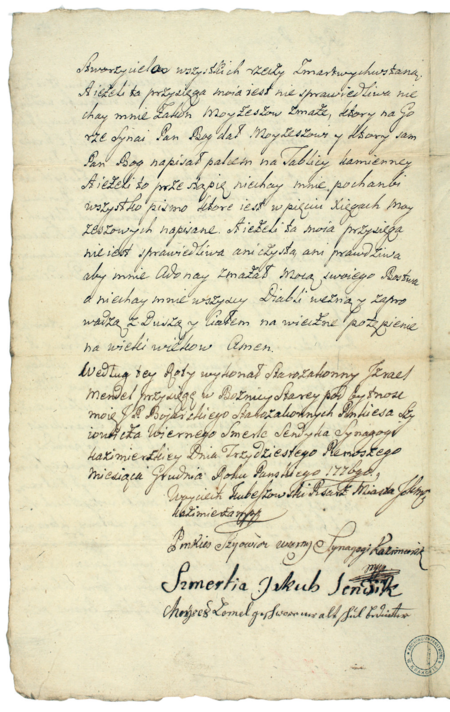 Stworzyciela wszystkich rzeczy Zmartwychwstanę.
A ieżeli ta przysięga moia iest nie sprawiedliwa nie
chay mnie Zakon Moyżeszow zmaże, ktory na Go
rze Synai Pan Bog dał Moyżeszowi y ktory sam
Pan Bog napisał palcem na Tablicy kamienney
A ieżeli to prze stąpię niechay mnie pochanbi
wszystko pismo ktore iest w pięciu Xięgach Moy
żeszowych napisane. A ieżeli ta moia przysięga
nie iest sprawiedliwa ani czysta, ani prawdziwa
aby mnie Adonay zmazał Mocą swoiego
a niechay mnie wszyscy Diabli wezną y zapro
wadzą z Duszą y Ciałem na wieczne potępienie
na wieki wiekow Amen.
Według tey Roty wykonał Starozakonny Izrael
Mendel przysięgę w Bożnicy Starey pod bytność
moię J. P. Starozakonnych Pinkiesa
Wiernego Smerle Sendyka Synagogi
Kazimierskiey Dnia Trzydziestego Pierwszego
Miesiąca Grudnia Roku Panskiego 1776go.
Woyciech Pisarz Miasta
Kazimierza mpp
Pinkies Synagogi
mpp
Szmerla Jakub Sendik